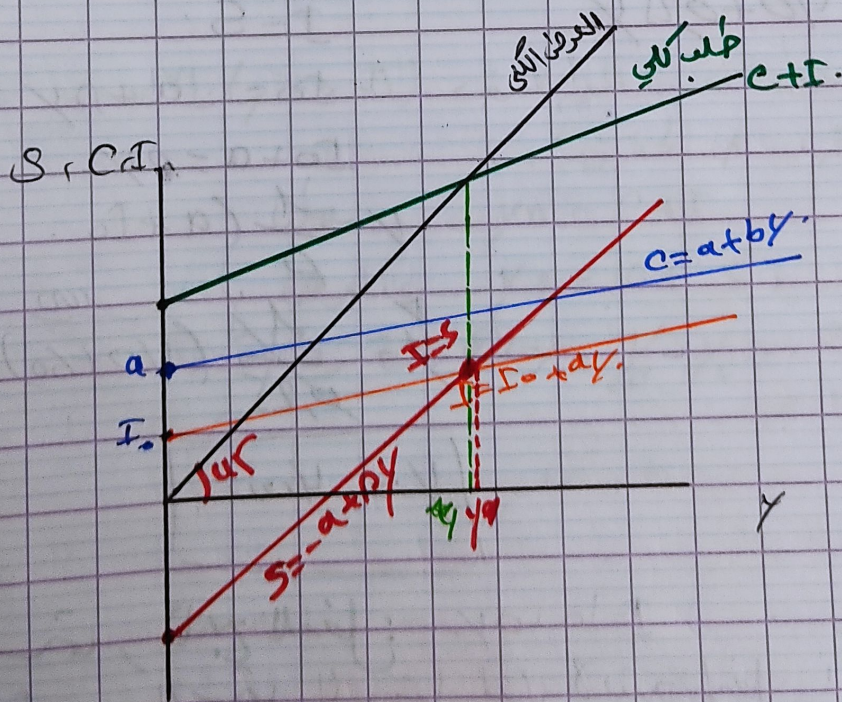 العرض الكلي
طلب كلي
C+I.
S, C, I
C=a+by.
a
I=S
I=I₀+dy.
I₀
45
S=-a+by
y
y*
y